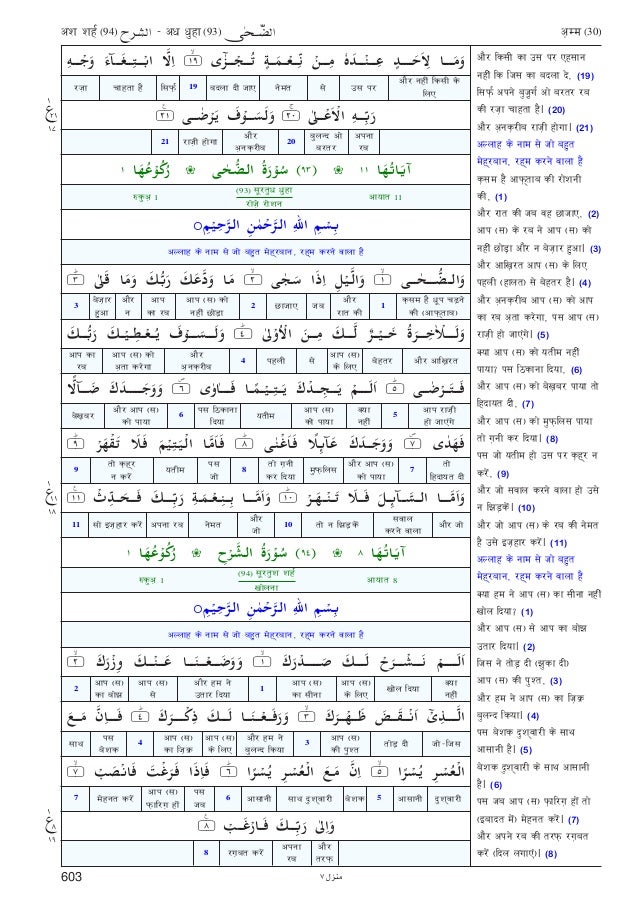 अश शर्ह (94) الشرح - अध धुहा (93) الضّحىٰ
अ़म्म (30)
وَمَا لِاَحَدٍ عِنْدَهٗ مِنْ نِّعْمَةٍ تُجْزٰٓى ۙ ١٩ اِلَّا ابْتِغَآءَ وَجْهِ
रज़ा चाहता है सिर्फ़ 19 बदला दी जाए नेमत से उस पर और नहीं किसी के लिए
رَبِّهِ الْاَعْلٰى ۚ ٢٠ وَلَسَوْفَ يَرْضٰى ۧ ٢١
21 राज़ी होगा और अ़नक़रीब 20 बुलन्द ओ बरतर अपना रब
اٰيَاتُهَا ١١ ❀ (٩٣) سُوْرَةُ الضُّحٰى ❀ رُكُوْعُهَا ١
रुकुअ़ 1 (93) सूरतुध धुहा रोज़े रोशन आयात 11
بِسْمِ اللهِ الرَّحْمٰنِ الرَّحِيْمِ ○
अल्लाह के नाम से जो बहुत मेह्रबान, रह्म करने वाला है
وَالضُّحٰى ۙ ١ وَالَّيْلِ اِذَا سَجٰى ۙ ٢ مَا وَدَّعَكَ رَبُّكَ وَمَا قَلٰى ؕ ٣
3 बेज़ार हुआ और न आप का रब आप (स) को नहीं छोड़ा 2 छाजाए जब और रात की 1 क़सम है धूप चढ़ने की (आफ़्ताब)
وَلَلْاٰخِرَةُ خَيْرٌ لَّكَ مِنَ الْاُوْلٰى ؕ ٤ وَلَسَوْفَ يُعْطِيْكَ رَبُّكَ
आप का रब आप (स) को अ़ता करेगा और अ़नक़रीब 4 पहली से आप (स) के लिए बेहतर और आख़िरत
فَتَرْضٰى ؕ ٥ اَلَمْ يَجِدْكَ يَتِيْمًا فَاٰوٰى ٦ وَوَجَدَكَ ضَآلًّا
बेख़बर और आप (स) को पाया 6 पस ठिकाना दिया यतीम आप (स) को पाया क्या नहीं 5 आप राज़ी हो जाएंगे
فَهَدٰى ٧ وَوَجَدَكَ عَآئِلًا فَاَغْنٰى ؕ ٨ فَاَمَّا الْيَتِيْمَ فَلَا تَقْهَرْ ؕ ٩
9 तो क़ह्र न करें यतीम पस जो 8 तो ग़नी कर दिया मुफ़्लिस और आप (स) को पाया 7 तो हिदायत दी
وَاَمَّا السَّآئِلَ فَلَا تَنْهَرْ ؕ ١٠ وَاَمَّا بِنِعْمَةِ رَبِّكَ فَحَدِّثْ ۧ ١١
11 सो इज़्हार करें अपना रब नेमत और जो 10 तो न झिड़कें सवाल करने वाला और जो
اٰيَاتُهَا ٨ ❀ (٩٤) سُوْرَةُ الشَّرْحِ ❀ رُكُوْعُهَا ١
रुकुअ़ 1 (94) सूरतुश शर्ह खोलना आयात 8
بِسْمِ اللهِ الرَّحْمٰنِ الرَّحِيْمِ ○
अल्लाह के नाम से जो बहुत मेह्रबान, रह्म करने वाला है
اَلَمْ نَشْرَحْ لَكَ صَدْرَكَ ۙ ١ وَوَضَعْنَا عَنْكَ وِزْرَكَ ۙ ٢
2 आप (स) का बोझ आप (स) से और हम ने उतार दिया 1 आप (स) का सीना आप (स) के लिए खोल दिया क्या नहीं
الَّذِيْٓ اَنْقَضَ ظَهْرَكَ ۙ ٣ وَرَفَعْنَا لَكَ ذِكْرَكَ ؕ ٤ فَاِنَّ مَعَ
साथ पस बेशक 4 आप (स) का ज़िक्र आप (स) के लिए और हम ने बुलन्द किया 3 आप (स) की पुश्त तोड़ दी जो-जिस
الْعُسْرِ يُسْرًا ۙ ٥ اِنَّ مَعَ الْعُسْرِ يُسْرًا ؕ ٦ فَاِذَا فَرَغْتَ فَانْصَبْ ۙ ٧
7 मेहनत करें आप (स) फ़ारिग़ हों पस जब 6 आसानी साथ दुश्वारी बेशक 5 आसानी दुश्वारी
وَاِلٰى رَبِّكَ فَارْغَبْ ۧ ٨
8 रग़बत करें अपना रब और तरफ़
और किसी का उस पर एहसान
नहीं कि जिस का बदला दे, (19)
सिर्फ़ अपने बुज़ुर्ग ओ बरतर रब
की रज़ा चाहता है। (20)
और अ़नक़रीब राज़ी होगा। (21)
अल्लाह के नाम से जो बहुत
मेह्रबान, रह्म करने वाला है
क़सम है आफ़्ताब की रोशनी
की, (1)
और रात की जब वह छाजाए, (2)
आप (स) के रब ने आप (स) को
नहीं छोड़ा और न बेज़ार हुआ। (3)
और आख़िरत आप (स) के लिए
पहली (हालत) से बेहतर है। (4)
और अ़नक़रीब आप (स) को आप
का रब अ़ता करेगा, पस आप (स)
राज़ी हो जाएंगे। (5)
क्या आप (स) को यतीम नहीं
पाया? पस ठिकाना दिया, (6)
और आप (स) को बेख़बर पाया तो
हिदायत दी, (7)
और आप (स) को मुफ़लिस पाया
तो ग़नी कर दिया। (8)
पस जो यतीम हो उस पर क़ह्र न
करें, (9)
और जो सवाल करने वाला हो उसे
न झिड़कें। (10)
और जो आप (स) के रब की नेमत
है उसे इज़्हार करें। (11)
अल्लाह के नाम से जो बहुत
मेह्रबान, रह्म करने वाला है
क्या हम ने आप (स) का सीना नहीं
खोल दिया? (1)
और आप (स) से आप का बोझ
उतार दिया। (2)
जिस ने तोड़ दी (झुका दी)
आप (स) की पुश्त, (3)
और हम ने आप (स) का ज़िक्र
बुलन्द किया। (4)
पस बेशक दुश्वारी के साथ
आसानी है। (5)
बेशक दुश्वारी के साथ आसानी
है। (6)
पस जब आप (स) फ़ारिग़ हों तो
(इबादत में) मेहनत करें। (7)
और अपने रब की तरफ़ रग़बत
करें (दिल लगाएं)। (8)
١ ع ٢١ ١٧
١ ع ١١ ١٨
١ ع ٨ ١٩
603
منزل ٧